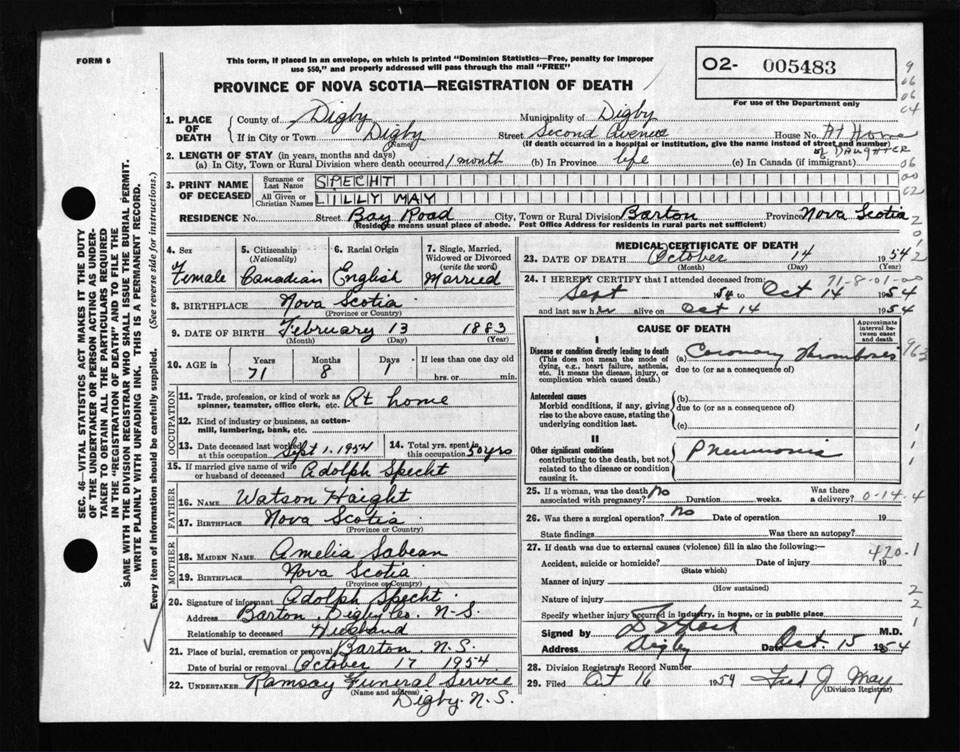 FORM 6
This form, if placed in an envelope, on which is printed "Dominion Statistics—Free, penalty for improper
use $50," and properly addressed will pass through the mail "FREE"
PROVINCE OF NOVA SCOTIA—REGISTRATION OF DEATH
O2- 005483
For use of the Department only
1. PLACE OF DEATH
County of Digby Municipality of Digby
If in City or Town Digby Street Second Avenue House No. At Home
(Name) (If death occurred in a hospital or institution, give the name instead of street and number)
of DAUGHTER
2. LENGTH OF STAY (in years, months and days)
(a) In City, Town or Rural Division where death occurred 1 month (b) In Province life (c) In Canada (if immigrant)
3. PRINT NAME OF DECEASED
Surname or Last Name SPECHT
All Given or Christian Names LILLY MAY
RESIDENCE No. Street Bay Road City, Town or Rural Division Barton Province Nova Scotia
(Residence means usual place of abode. Post Office Address for residents in rural parts not sufficient)
4. Sex Female
5. Citizenship (Nationality) Canadian
6. Racial Origin English
7. Single, Married, Widowed or Divorced (write the word) Married
8. BIRTHPLACE Nova Scotia
(Province or Country)
9. DATE OF BIRTH February 13 1883
(Month) (Day) (Year)
10. AGE in Years 71 Months 8 Days 1 If less than one day old
hrs. or min.
OCCUPATION
11. Trade, profession, or kind of work as spinner, teamster, office clerk, etc. At home
12. Kind of industry or business, as cotton-mill, lumbering, bank, etc.
13. Date deceased last worked at this occupation Sept 1. 1954
14. Total yrs. spent in this occupation 50 yrs
15. If married give name of wife or husband of deceased Adolph Specht
FATHER
16. NAME Watson Haight
17. BIRTHPLACE Nova Scotia
(Province or Country)
MOTHER
18. MAIDEN NAME Amelia Sabean
19. BIRTHPLACE Nova Scotia
(Province or Country)
20. Signature of informant Adolph Specht
Address Barton Digby Co. N.S.
Relationship to deceased Husband
21. Place of burial, cremation or removal Barton. N.S.
Date of burial or removal October 17 1954
22. UNDERTAKER Ramsay Funeral Service
(Name and address)
Digby. N.S.
MEDICAL CERTIFICATE OF DEATH
23. DATE OF DEATH October 14 1954
(Month) (Day) (Year)
24. I HEREBY CERTIFY that I attended deceased from: 71-8-01-0
Sept 1954 to Oct 14 1954
and last saw her alive on Oct 14 1954
CAUSE OF DEATH
Approximate interval between onset and death
I
Disease or condition directly leading to death (a) Coronary Thrombosis
(This does not mean the mode of dying, e.g., heart failure, asthenia, etc. It means the disease, injury, or complication which caused death.)
due to (or as a consequence of)
Antecedent causes
Morbid conditions, if any, giving rise to the above cause, stating the underlying condition last.
(b)
due to (or as a consequence of)
(c)
II
Other significant conditions contributing to the death, but not related to the disease or condition causing it. Pneumonia
25. If a woman, was the death associated with pregnancy? No Duration weeks. Was there a delivery? 0-14-4
26. Was there a surgical operation? No Date of operation 19
State findings Was there an autopsy?
27. If death was due to external causes (violence) fill in also the following:— 420-1
Accident, suicide or homicide? Date of injury 19
(State which)
Manner of injury
(How sustained)
Nature of injury
Specify whether injury occurred in industry, in home, or in public place
Signed by M.D.
Address Digby Date Oct. 15 1954
28. Division Registrar's Record Number
29. Filed Oct 16 1954 Fred J. May
(Division Registrar)
SEC. 46—VITAL STATISTICS ACT MAKES IT THE DUTY
OF THE UNDERTAKER OR PERSON ACTING AS UNDER-
TAKER TO OBTAIN ALL THE PARTICULARS REQUIRED
IN THE "REGISTRATION OF DEATH" AND TO FILE THE
SAME WITH THE DIVISION REGISTRAR WHO SHALL ISSUE THE BURIAL PERMIT.
WRITE PLAINLY WITH UNFADING INK. THIS IS A PERMANENT RECORD.
Every item of information should be carefully supplied. (See reverse side for instructions.)